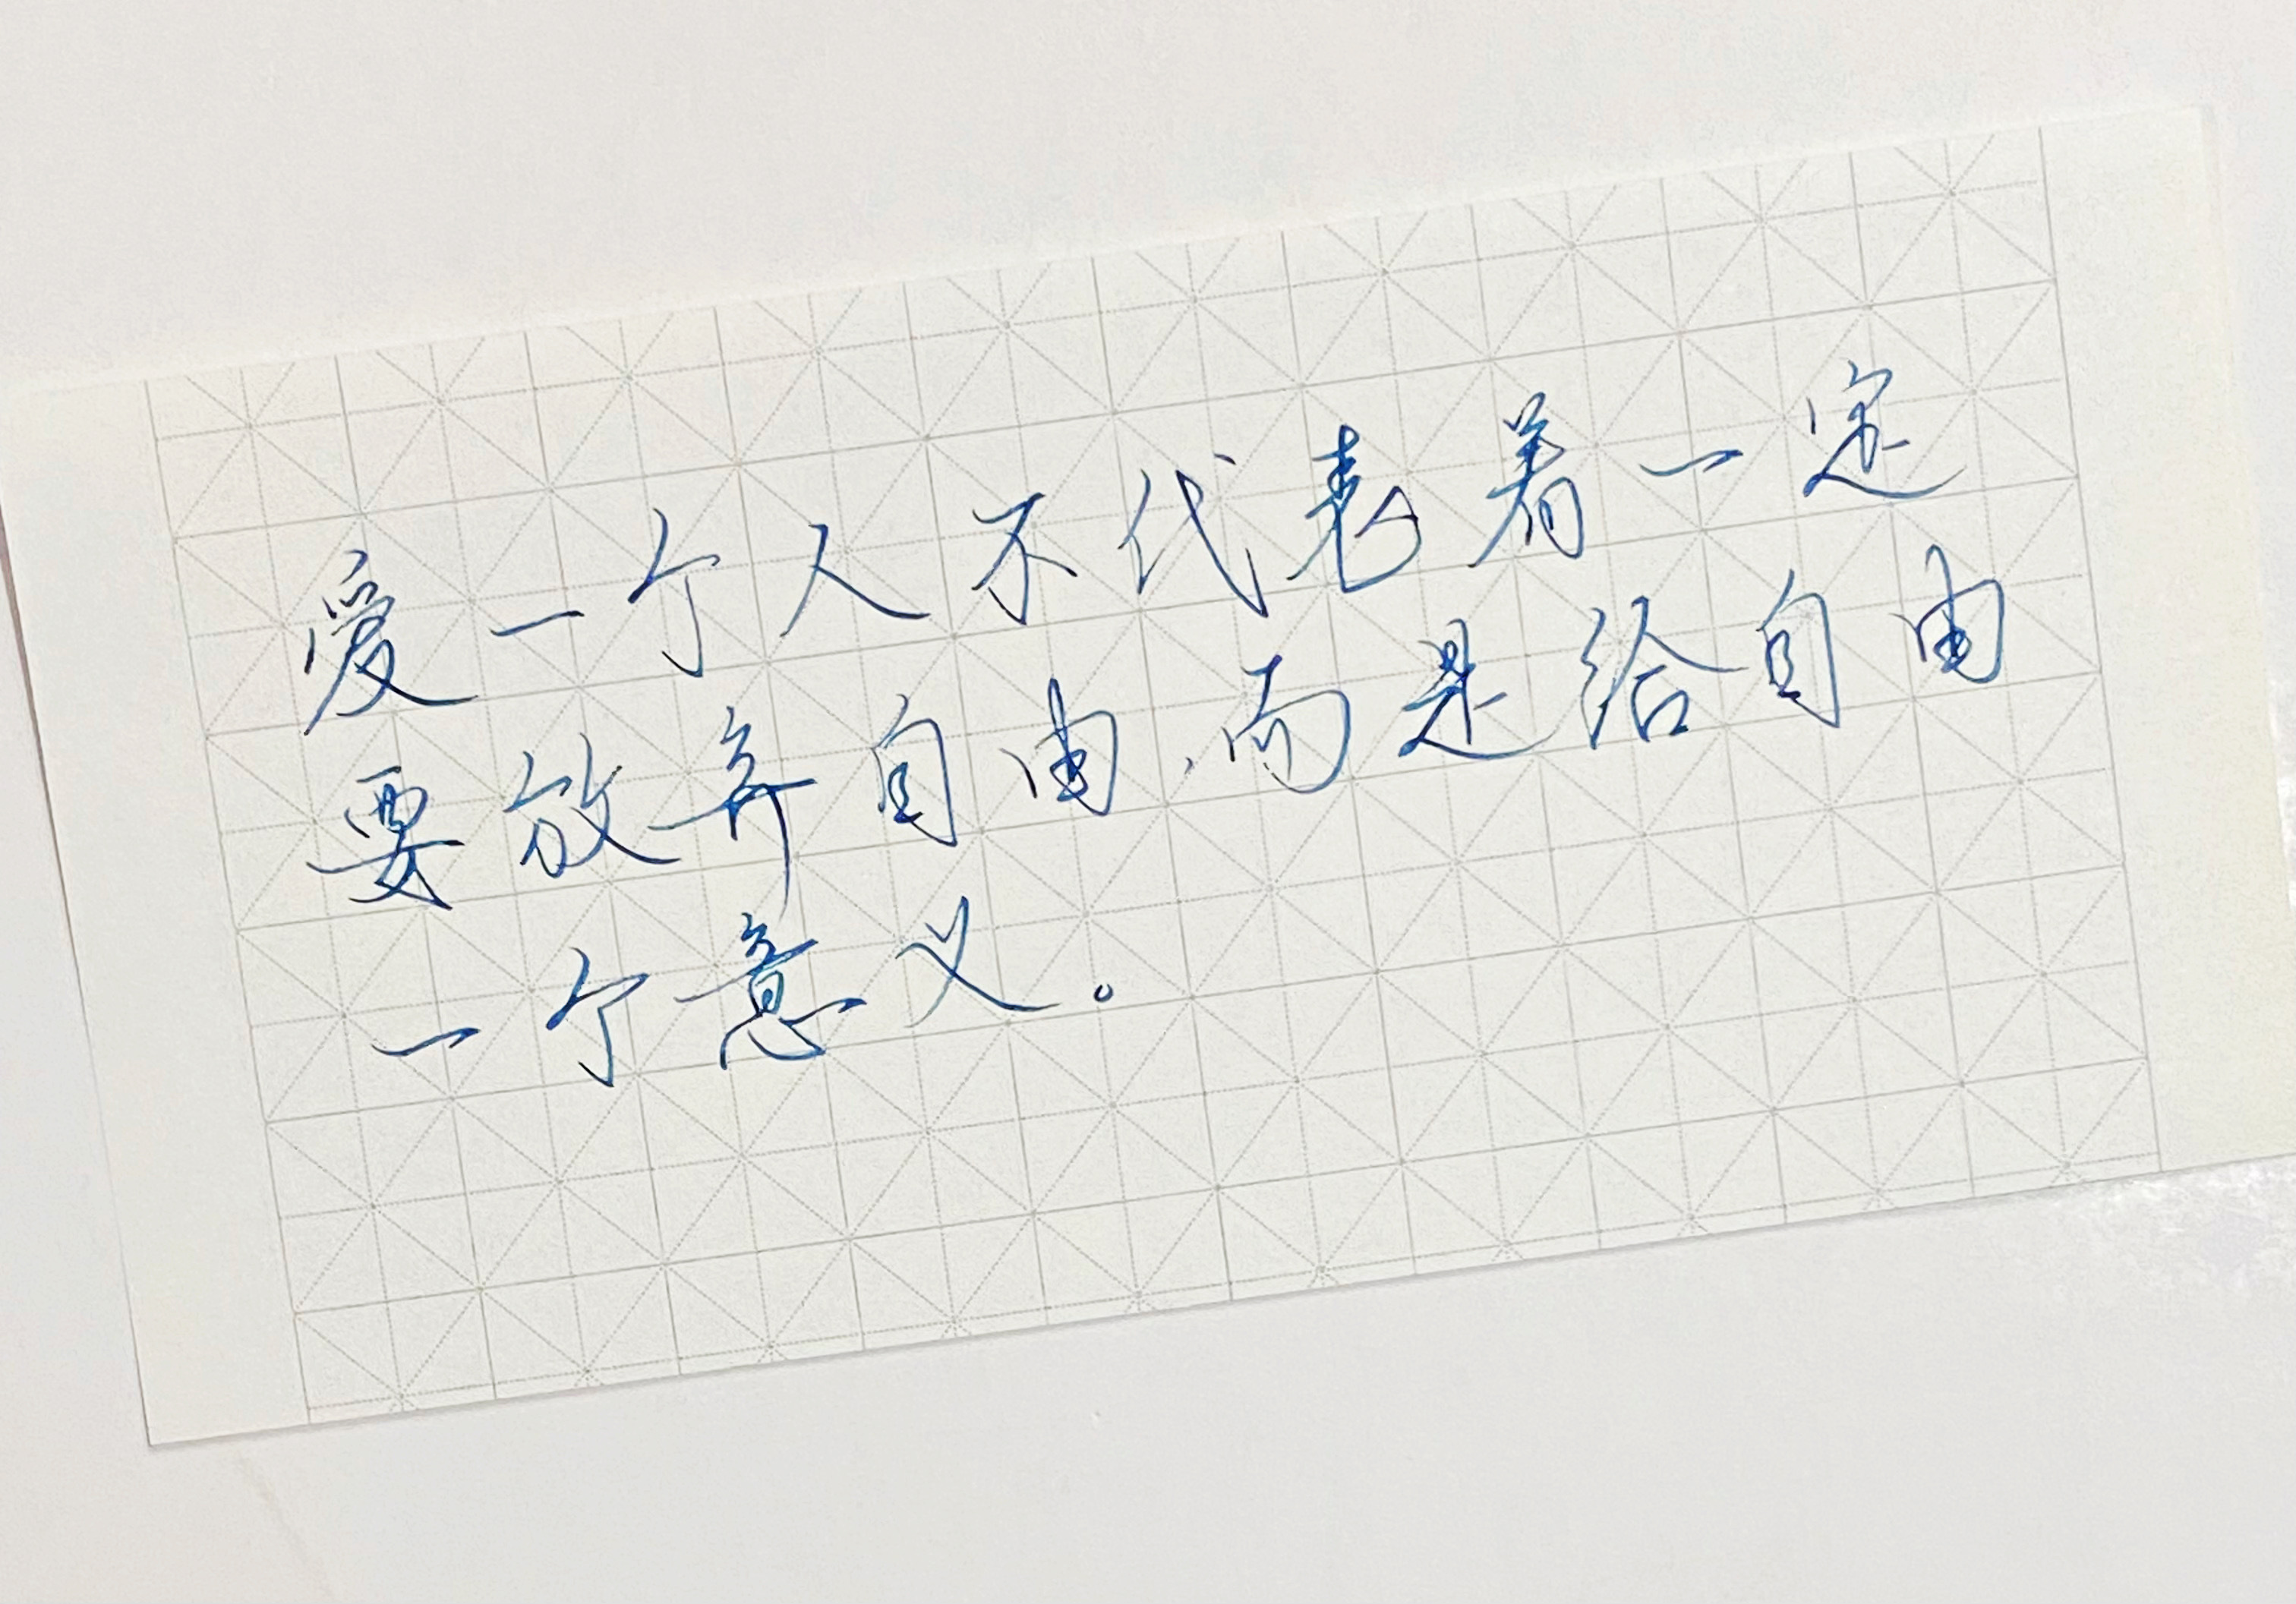 爱一个人不代表着一定
要放弃自由，而是给自由
一个意义。